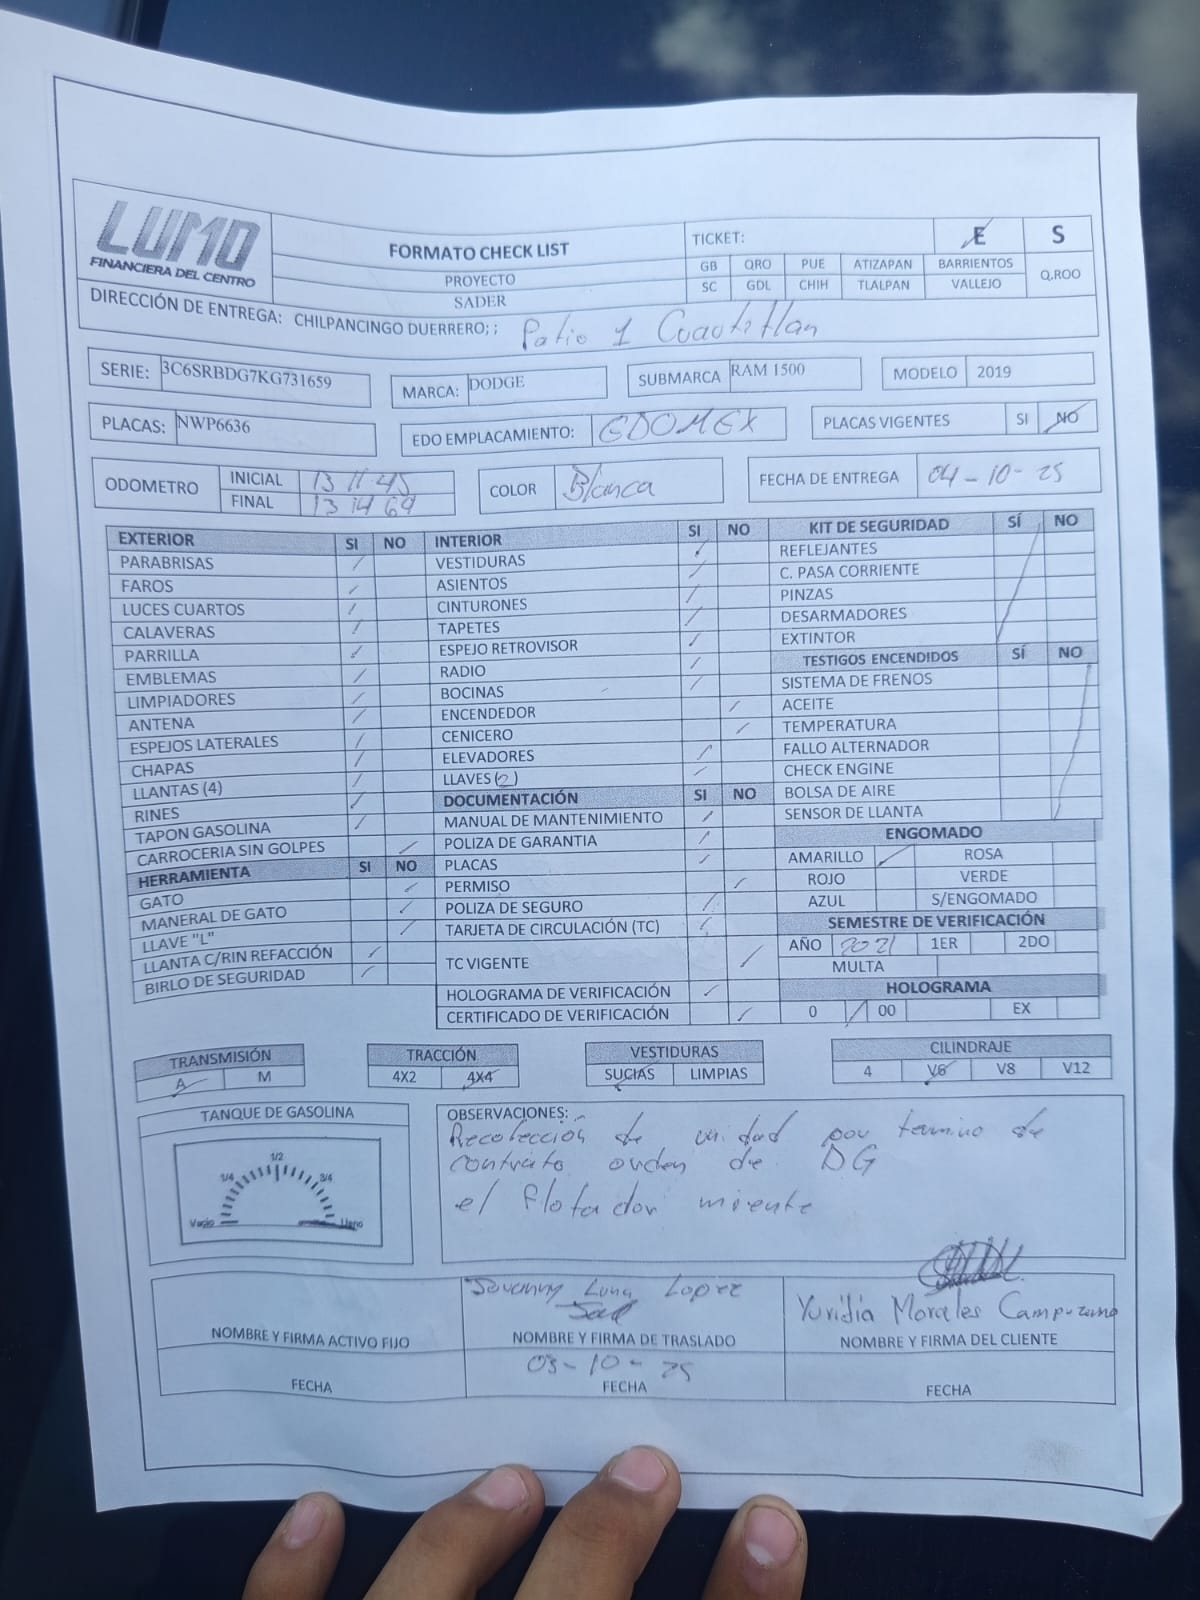 LUMO
FINANCIERA DEL CENTRO
FORMATO CHECK LIST
PROYECTO
SADER
TICKET: E S
GB QRO PUE ATIZAPAN BARRIENTOS Q.ROO
SC GDL CHIH TLALPAN VALLEJO
DIRECCIÓN DE ENTREGA: CHILPANCINGO DUERRERO; ; Patio 1 Cuautitlan
SERIE: 3C6SRBDG7KG731659 MARCA: DODGE SUBMARCA RAM 1500 MODELO 2019
PLACAS: NWP6636 EDO EMPLACAMIENTO: EDOMEX PLACAS VIGENTES SI NO
ODOMETRO INICIAL 131145 COLOR Blanca FECHA DE ENTREGA 04-10-25
FINAL 131469
EXTERIOR SI NO
PARABRISAS
FAROS
LUCES CUARTOS
CALAVERAS
PARRILLA
EMBLEMAS
LIMPIADORES
ANTENA
ESPEJOS LATERALES
CHAPAS
LLANTAS (4)
RINES
TAPON GASOLINA
CARROCERIA SIN GOLPES
HERRAMIENTA SI NO
GATO
MANERAL DE GATO
LLAVE "L"
LLANTA C/RIN REFACCIÓN
BIRLO DE SEGURIDAD
INTERIOR SI NO
VESTIDURAS
ASIENTOS
CINTURONES
TAPETES
ESPEJO RETROVISOR
RADIO
BOCINAS
ENCENDEDOR
CENICERO
ELEVADORES
LLAVES (2)
DOCUMENTACIÓN SI NO
MANUAL DE MANTENIMIENTO
POLIZA DE GARANTIA
PLACAS
PERMISO
POLIZA DE SEGURO
TARJETA DE CIRCULACIÓN (TC)
TC VIGENTE
HOLOGRAMA DE VERIFICACIÓN
CERTIFICADO DE VERIFICACIÓN
KIT DE SEGURIDAD SÍ NO
REFLEJANTES
C. PASA CORRIENTE
PINZAS
DESARMADORES
EXTINTOR
TESTIGOS ENCENDIDOS SÍ NO
SISTEMA DE FRENOS
ACEITE
TEMPERATURA
FALLO ALTERNADOR
CHECK ENGINE
BOLSA DE AIRE
SENSOR DE LLANTA
ENGOMADO
AMARILLO ROSA
ROJO VERDE
AZUL S/ENGOMADO
SEMESTRE DE VERIFICACIÓN
AÑO 2021 1ER 2DO
MULTA
HOLOGRAMA
0 00 EX
TRANSMISIÓN
A M
TRACCIÓN
4X2 4X4
VESTIDURAS
SUCIAS LIMPIAS
CILINDRAJE
4 V6 V8 V12
TANQUE DE GASOLINA
1/2
1/4 3/4
Vacio Lleno
OBSERVACIONES:
Recolección de unidad por termino de
contrato orden de DG
el flotador miente
NOMBRE Y FIRMA ACTIVO FIJO
FECHA
Luna Lopez
NOMBRE Y FIRMA DE TRASLADO
03-10-25
FECHA
Yuridia Morales Campuzano
NOMBRE Y FIRMA DEL CLIENTE
FECHA